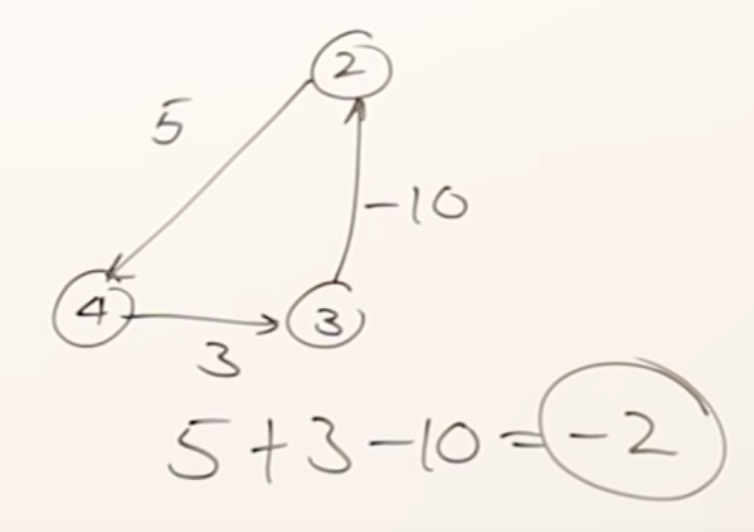 2
5
-10
4
3
3
5+3-10=-2